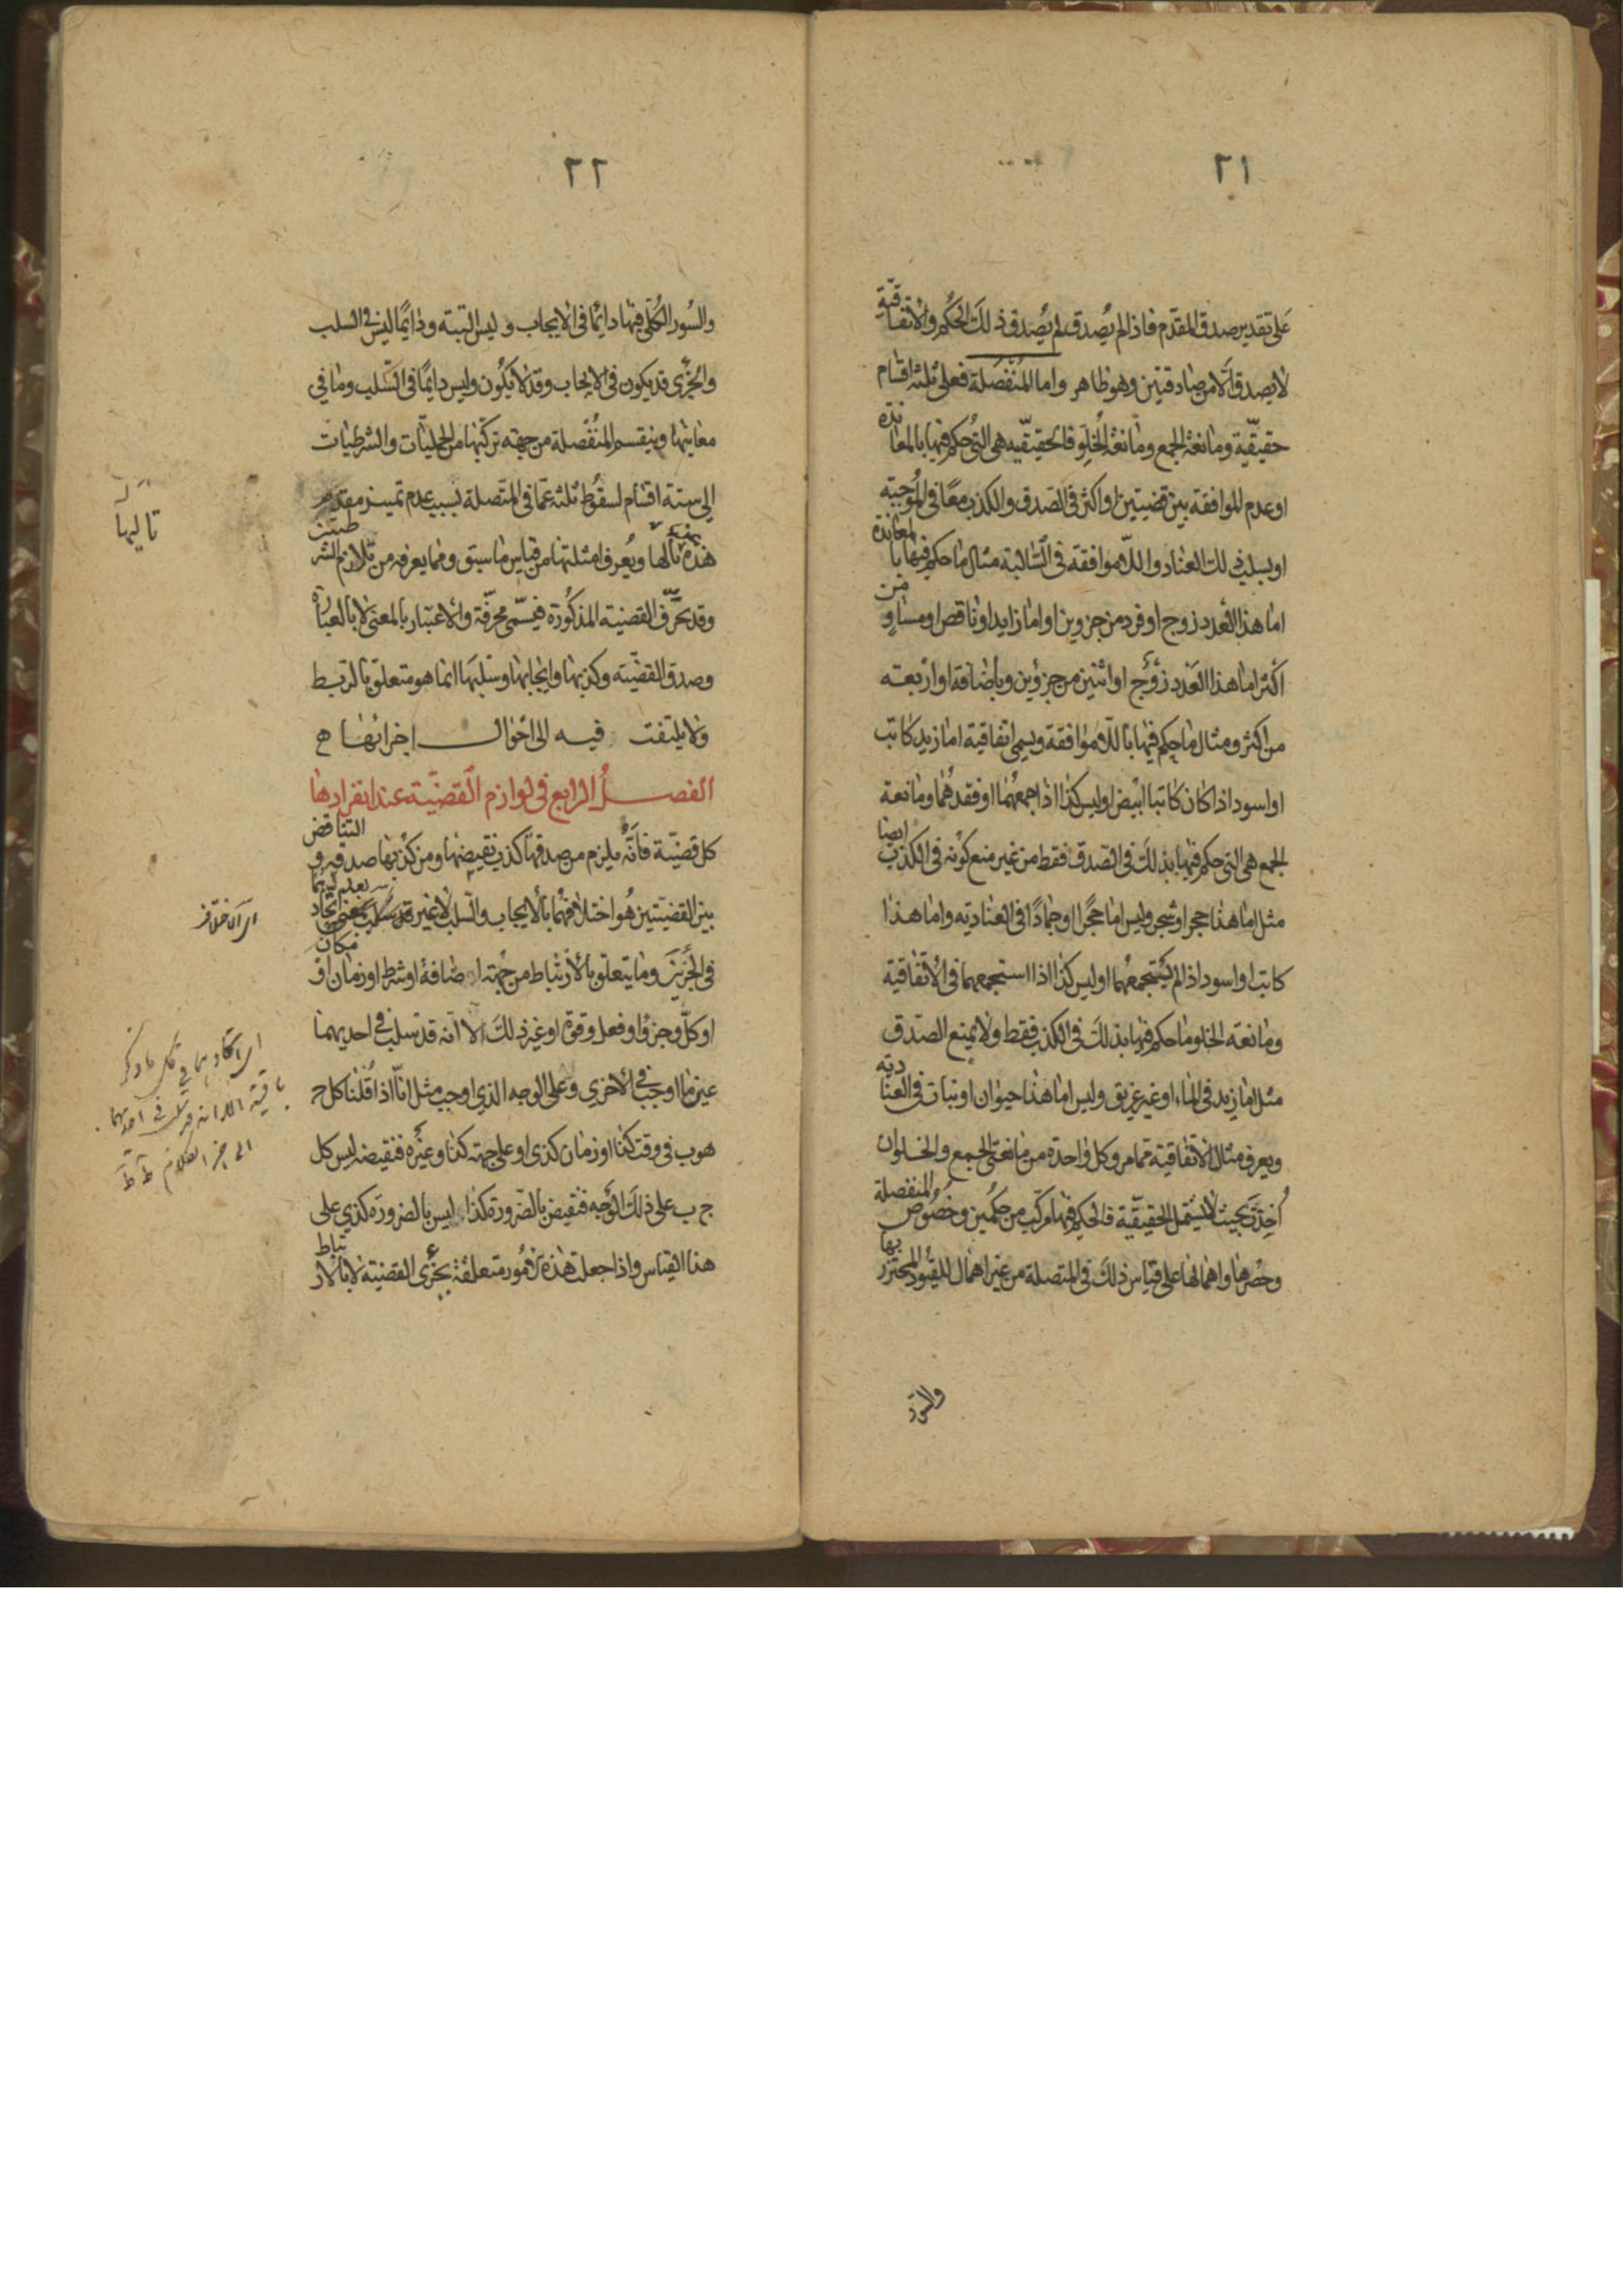 ٢١
على تقدير صدق المقدّم فاذا لم يُصدق لم يُصدق ذلك الحكم والاتفاقيّة
لا يصدق الّا من صادقتين وهو ظاهر واما المنفصلة فعلى ثلثة اقسام
حقيقيّة ومانعة الجمع ومانعة الخلو فالحقيقيّه هى التى حكم فيها بالمعاندة
او عدم الموافقة بين قضيتين او اكثر فى الصدق والكذب معًا فى الموجبته
او بسلب ذلك العناد واللاموافقة فى السّالبة مثال ما حكم فيها بالمعاندة
اما هذا العدد زوج او فرد من جزوين او اما زايد او ناقص او مساوٍ من
اكثر اما هذا العَدَد زوج او اثنين من جزوين وباضافة او اربعته
من اكثر ومثال ما حكم فيها باللاموافقة ويسمى اتفاقية اما زيد كاتب
او اسود اذا كان كاتبا ابيض او ليس كذا اذا جمعهُما او فقدهُما ومانعة
الجمع هى التى حكم فيها بذلك فى الصدق فقط من غير منع كونه فى الكذب ايضا
مثل اما هذا حجر او شجر وليس اما حجرًا او جمادًا فى العناديه واما هذا
كاتب او اسود اذ لم يستجمعهُما او ليس كذا اذا استجمعهما فى الاتّفاقية
ومانعة الخلو ما حكم فيها بذلك فى الكذب فقط ولا يمنع الصّدق
مثل اما زيد فى الماء او غير غريق وليس اما هذا حيوان او نبات فى العناديه
ويعرف مثال الاتّفاقية ممّا مر وكل واحدة من مانعتى الجمع والخلو ان
اُخِذت بحيث لا يشمل الحقيقيّة فالحكم فيها مركّب من حكمين وخصُوص المنفصلة
وحصرها واهمالها على قياس ذلك فى المتصلة من غير اهمال للقيُود المحترز بها
والسّور
٢٢
والسُور الكُلى فيها دائمًا فى الايجاب وليس البتبه ودايمًا ليس فى السلب
والجزى قد يكون فى الايجاب وقد لا يكون وليس دايمًا فى السّلب وما فى
معانيها وينقسم المنفصلة من جهته تركيبها من الحمليّات والشرطيات
الى ستة اقسام لسقُوط ثلثه عمّا فى المتصلة بسبب عدم تميـز مقدم
هذه تاليها ويُعرف امثلتها من قياس ما سبق ومما يعرفه من تلازم الشرطيتين
وقد تحرّف القضية المذكورة فيسمّى محرّفة والاعتبار بالمعنى لا بالعبارة
وصدق القضيّته وكذبها وايجابها وسلبها انما هو متعلّق بالربط
ولا يلتفت فيه الى احوال اجزائها ح
الفصل الرابع فى لوازم القضيّة عند انفرادها
كل قضيّة فانّه يلزم من صدقها كذب نقيضها ومن كذبها صدقه والتناقض
بين القضيتين هُو اختلافهُما بالايجاب والسّلب لا غير بمعنى اتحاد
فى الجزئين وما يتعلق بالارتباط من جهته اضافة او شرط او زمان او مكان
او كلّ وجزؤ او فعل وقوة او غير ذلك الا انه قد سلب فى احديهما
عين ما اوجب فى الاخرى وعلى الوجه الذى اوجب مثل انّا اذا قُلنا كل ج
هو ب فى وقت كذا او زمان كذى او على جهته كذا وغيره فنقيضه ليس كل
ج ب على ذلك الوجه فنقيض بالضّرورة كذا ليس بالضرورة كذى على
هذا القياس واذا جعلت هذه الامُور متعلقة بجزءى القضيته لا بالارتباط
تاليها
اى الاختلاف
اى اتحادهما فى كل ما ذكر
باقية الا انه قد سلب فى احديهما
الى اخر الكلام